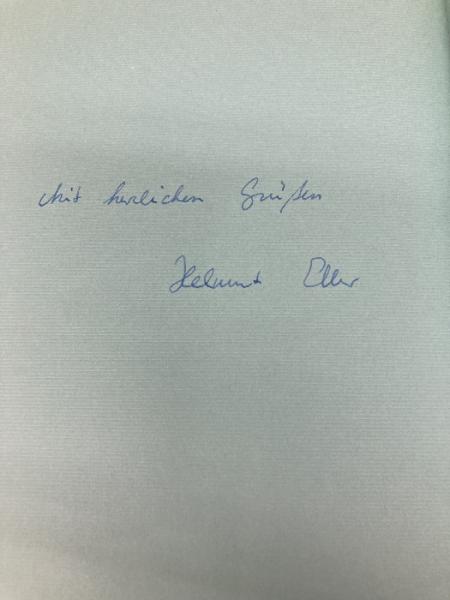 Mit herzlichen Grüßen
Helmut Eller